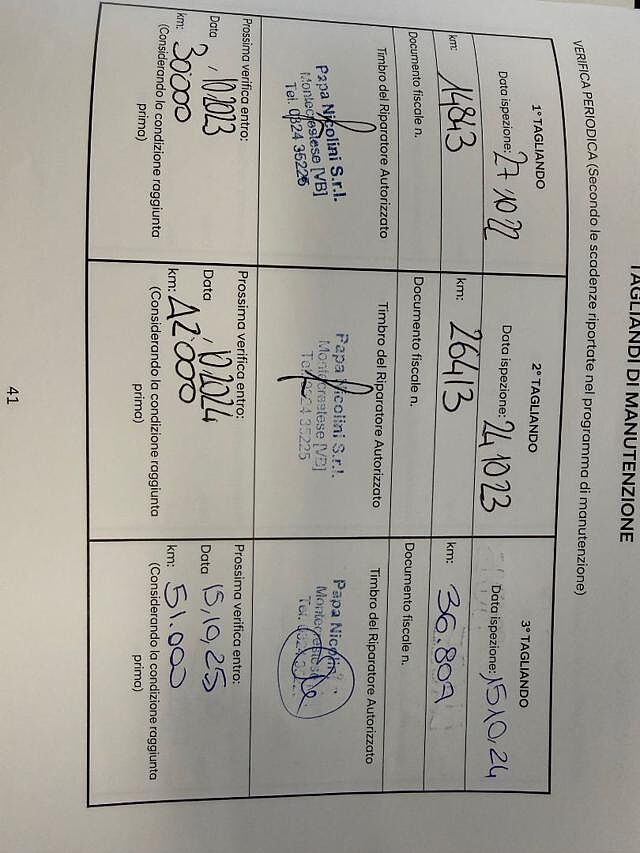 TAGLIANDI DI MANUTENZIONE
VERIFICA PERIODICA (Secondo le scadenze riportate nel programma di manutenzione)
1° TAGLIANDO
Data ispezione: 27.10.22
km: 14843
Documento fiscale n.
Timbro del Riparatore Autorizzato
Papa Nicolini S.r.l.
Montecrestese [VB]
Tel. 0324 35225
Prossima verifica entro:
Data , 10.2023
km: 30.000
(Considerando la condizione raggiunta
prima)
2° TAGLIANDO
Data ispezione: 24 10 23
km: 26413
Documento fiscale n.
Timbro del Riparatore Autorizzato
Papa Nicolini S.r.l.
Montecrestese [VB]
Tel. 0324 35225
Prossima verifica entro:
Data , 10.2024
km: 42.000
(Considerando la condizione raggiunta
prima)
3° TAGLIANDO
Data ispezione: 15,10,24
km: 36.807
Documento fiscale n.
Timbro del Riparatore Autorizzato
Papa Nicolini
Montecrestese
Tel. 0324
Prossima verifica entro:
Data 15,10,25
km: 51.000
(Considerando la condizione raggiunta
prima)
41